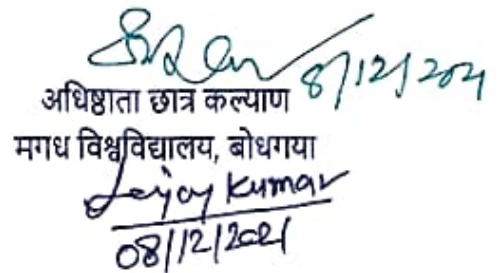 8/12/2021
अधिष्ठाता छात्र कल्याण
मगध विश्वविद्यालय, बोधगया
Kumar
08/12/2021